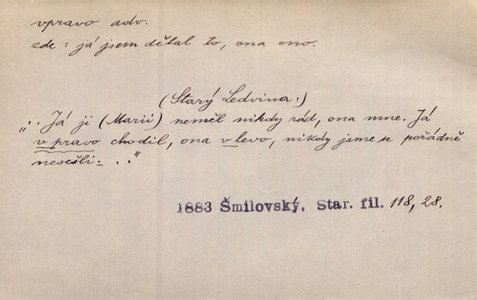 vpravo adv.
zde: já jsem dělal to, ona ono.
(Starý Ledvina:)
„.. Já ji (Marii) neměl nikdy rád, ona mne. Já
v pravo chodil, ona v levo, nikdy jsme se pořádně
nesešli: ..“
1883 Šmilovský, Star. fil. 118, 28.